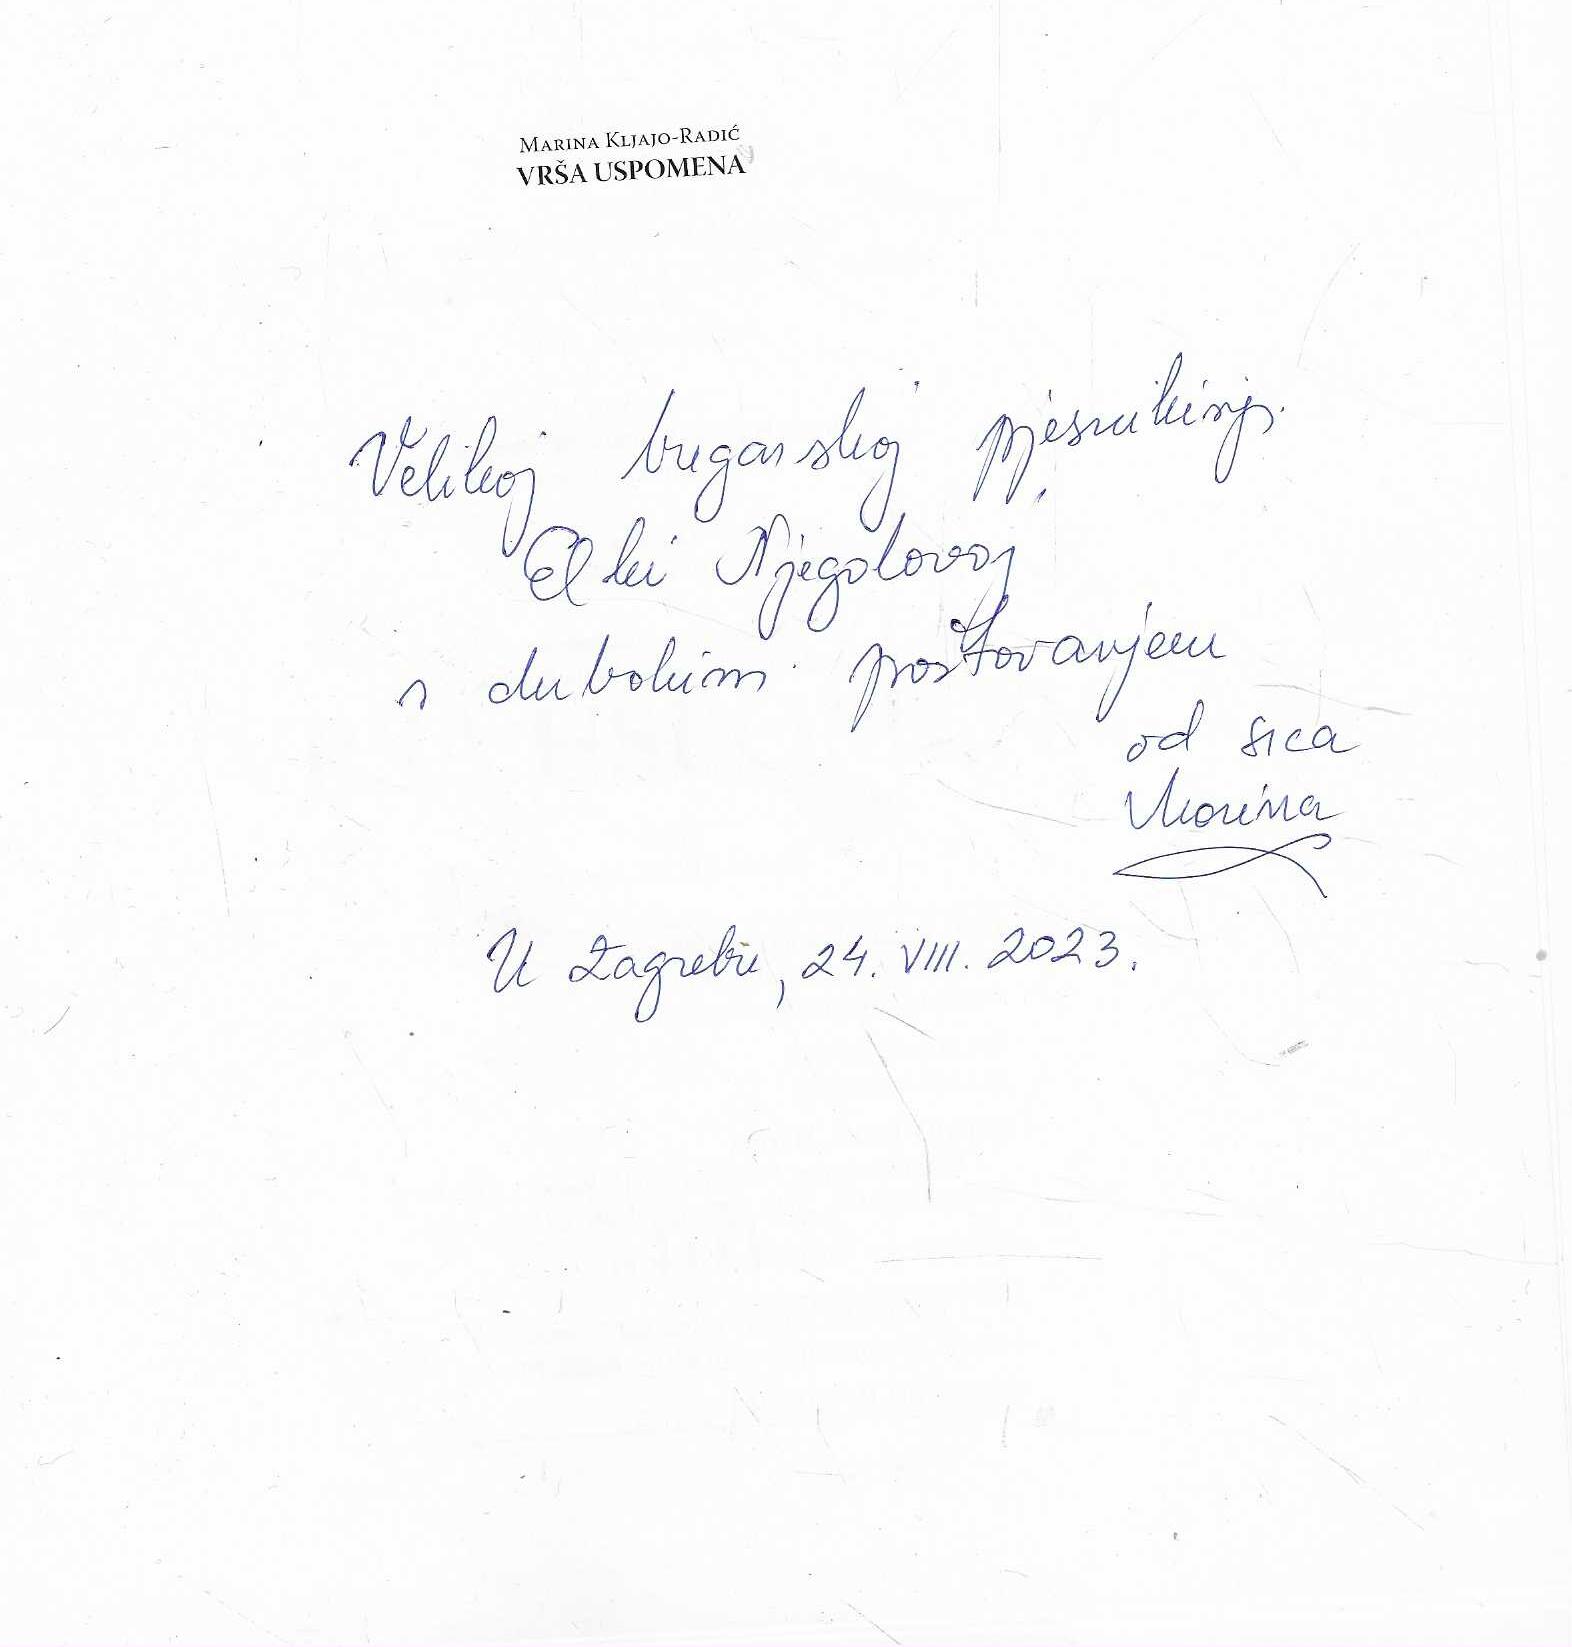 MARINA KLJAJO-RADIĆ
VRŠA USPOMENA
Velikoj bugarskoj pjesnikinji
Elki Njagolovoj
s dubokim poštovanjem
od srca
Marina
U Zagrebu, 24. VIII. 2023.